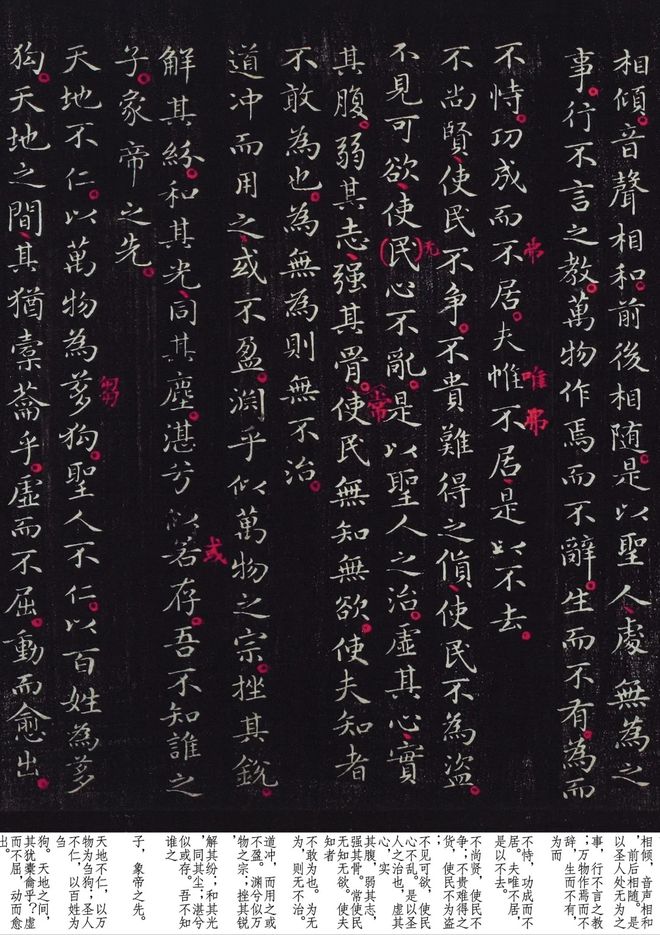 相傾。音聲相和。前後相隨。是以聖人、處無為之
事。行不言之教。萬物作焉而不辭。生而不有。為而
不恃。功成而不居。夫惟不居、是以不去。
弗
唯弗
不尚賢、使民不争。不貴難得之貨、使民不為盜。
不見可欲、使(民)心不亂。是以聖人之治。虛其心、實
无
其腹。弱其志、强其骨。使民無知無欲。使夫知者
常
不敢為也。為無為則無不治。
道冲而用之、或不盈。渊乎似萬物之宗。挫其銳。
解其紛。和其光、同其塵。湛兮似若存。吾不知誰之
或
子。象帝之先。
天地不仁。以萬物為芻狗。聖人不仁。以百姓為芻
芻
狗。天地之間、其猶橐籥乎。虛而不屈。動而愈出。
相倾，音声相和
，前后相随。是
以圣人处无为之
事，行不言之教
；万物作焉而不
辞，生而不有，
为而
不恃，功成而不
居。夫唯不居，
是以不去。
不尚贤，使民不
争；不贵难得之
货，使民不为盗
；
不见可欲，使民
心不乱。是以圣
人之治也，虚其
心，实
其腹，弱其志，
强其骨。常使民
无知无欲。使夫
知者
不敢为也。为无
为，则无不治。
道冲，而用之或
不盈。渊兮似万
物之宗；挫其锐
，
解其纷；和其光
，同其尘；湛兮
似或存。吾不知
谁之
子，象帝之先。
天地不仁，以万
物为刍狗；圣人
不仁，以百姓为
刍
狗。天地之间，
其犹橐龠乎？虚
而不屈，动而愈
出。